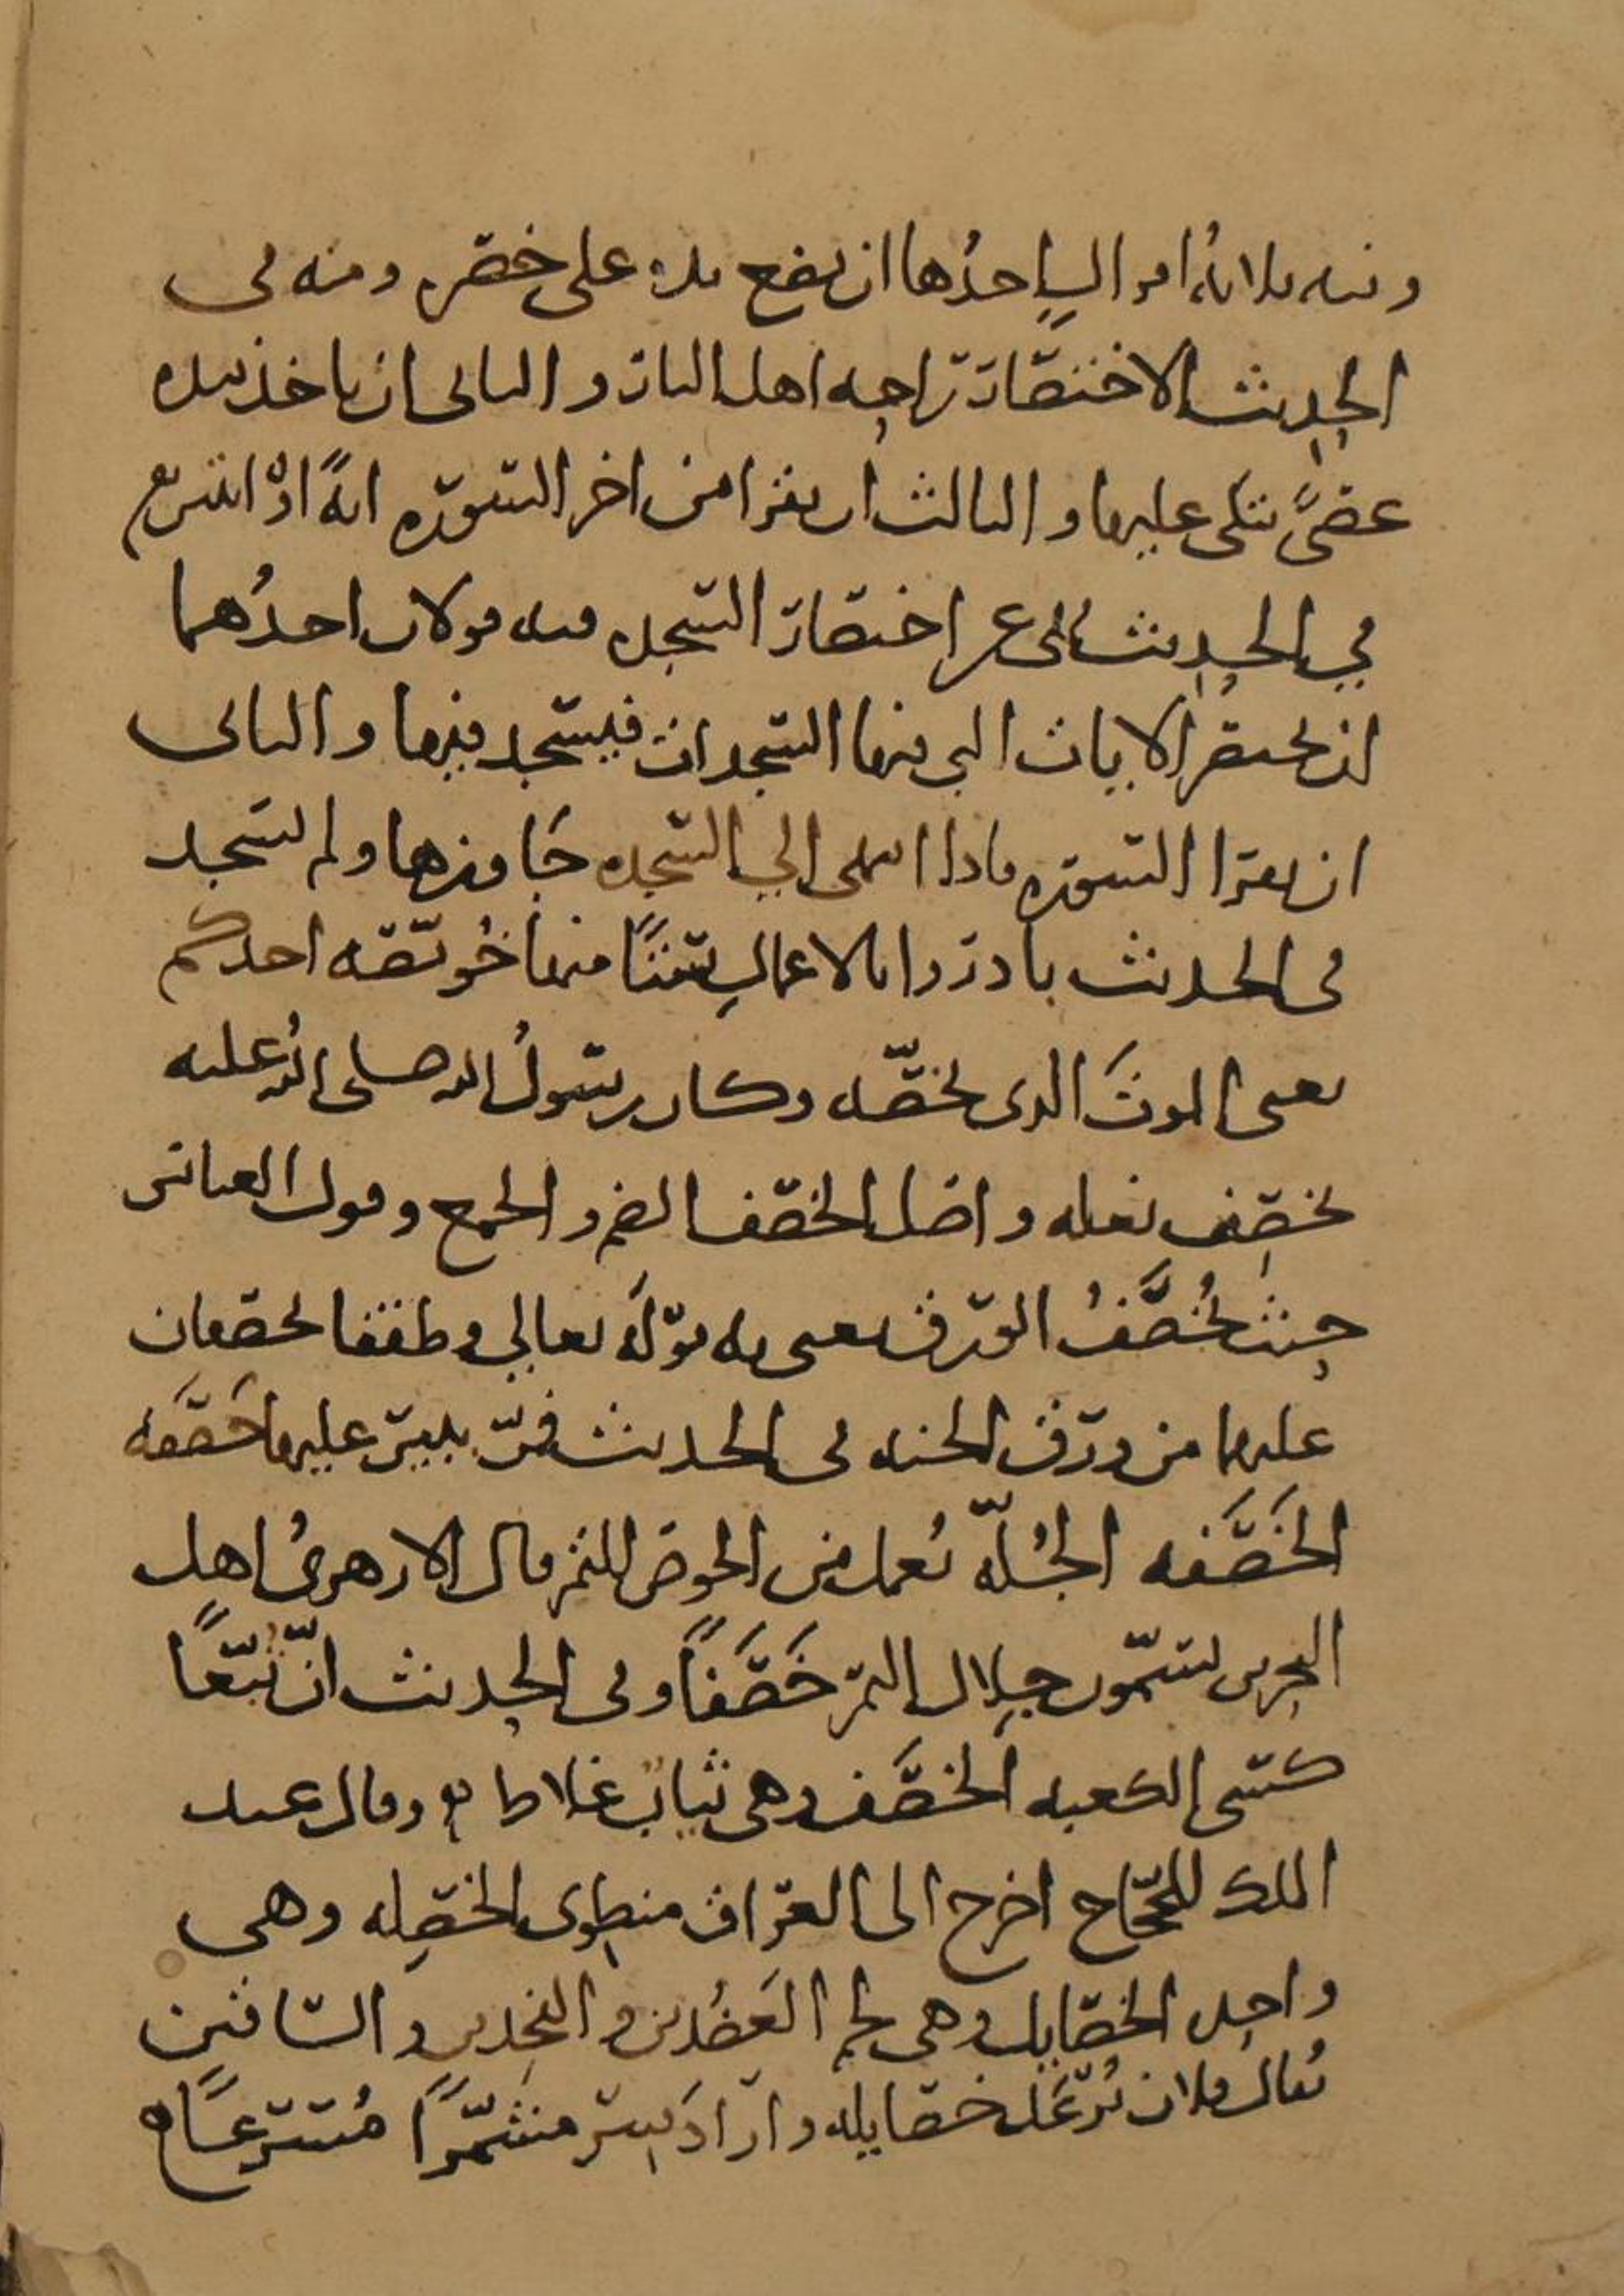 وفيه ثلاثة اقوال احدها ان يضع يده على خصره ومنه في
الحديث الاختصار راحه اهل النار والثاني ان ياخذ بيده
عصىً يتكى عليها والثالث ان يقرا من اخر السورة ايةً او ايتين
في الحديث نهى عن اختصار السجده فيه قولان احدُهما
ان يختصر الايات التي فيها السجدات فيسجد فيها والثاني
ان يقرا السوره فاذا انتهى الي السجده جَاوزها ولم يسجد
في الحديث بادروا بالاعمالِ ستًا منها خُويصّه احدكم
يعنى الموتَ الذى يخصّه وكان رسولُ الله صلى اللهُ عليه
يخصِف نعله واصل الخصف الضم والجمع وقول العباس
حيث يُخصَفُ الورق يعنى به قولَه تعالي وطفقا يخصفان
عليهما من ورق الجنه في الحديث فمرّ ببير عليها خَصَفَه
الخَصَفه الجُلّه تُعمل من الخوص للتمر قال الازهرىُ اهل
البحرين يسمّون جِلال التمر خَصَفًا وفى الحديث انّ تُبّعًا
كسى الكعبه الخصَف وهى ثيابٌ غلاظ وقال عبد
الملك للحجّاج اخرج الى العراق منطوى الخصِيله وهى
واحِده الخصايل وهى لحم العَضُدين والفخِذين والساقين
يُقال فلان تُرعَد خصايله واراد سِر منشمّرًا مُسرعًا